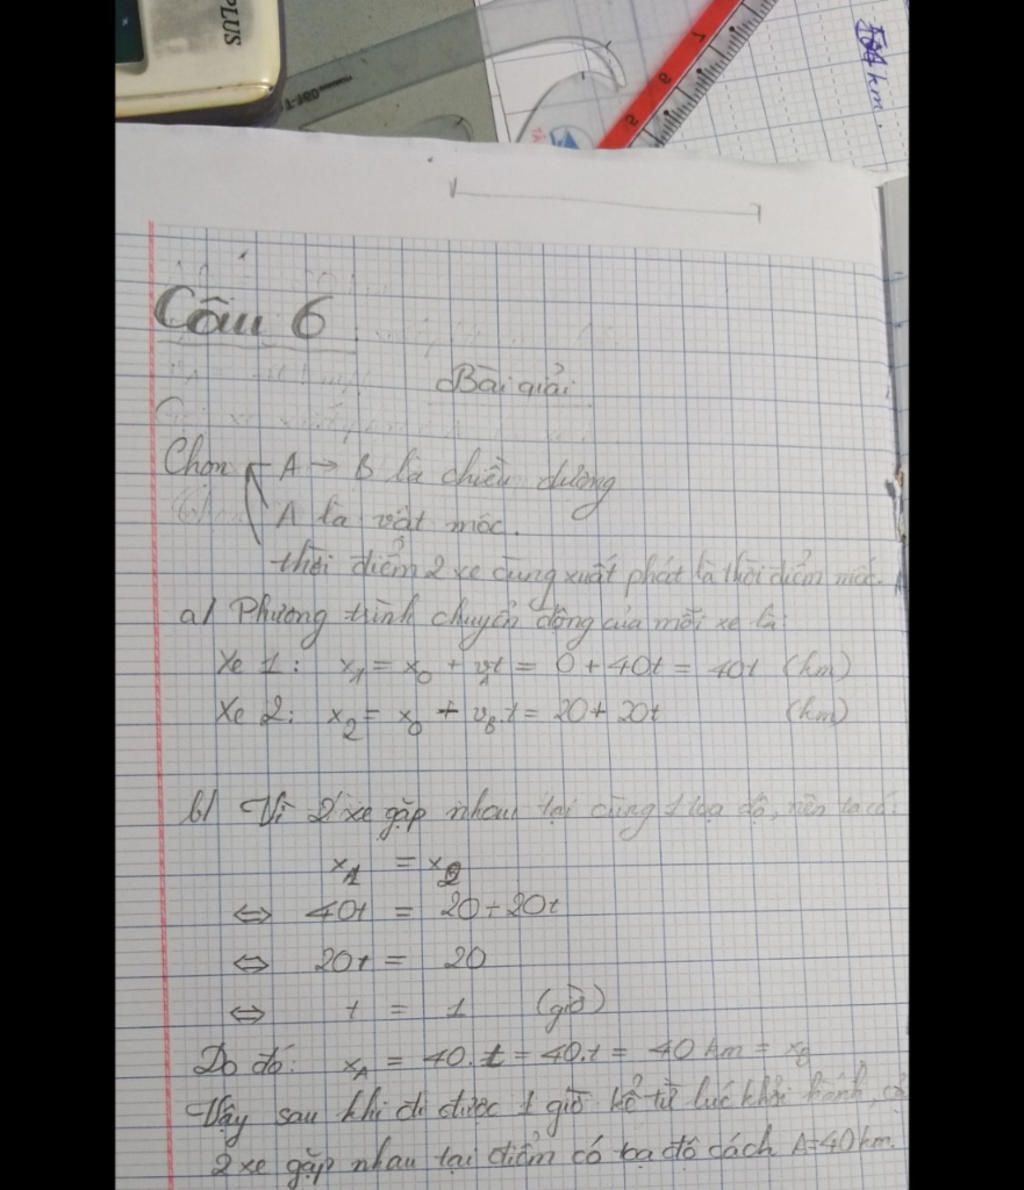 PLUS
km.
Câu 6
Bài giải
Chọn A → B là chiều dương
A là vật mốc.
thời điểm 2 xe cùng xuất phát là thời điểm mốc.
a/ Phương trình chuyển động của mỗi xe là:
Xe 1: x₁ = x₀ + v_A t = 0 + 40t = 40t (km)
Xe 2: x₂ = x₀ + v_B.t = 20 + 20t (km)
b/ Vì 2 xe gặp nhau tại cùng 1 toạ độ, nên ta có:
x₁ = x₂
⇔ 40t = 20 + 20t
⇔ 20t = 20
⇔ t = 1 (giờ)
Do đó: x_A = 40.t = 40.1 = 40 km = x_B
Vậy sau khi đi được 1 giờ kể từ lúc khởi hành, cả
2 xe gặp nhau tại điểm có tọa độ cách A=40km.